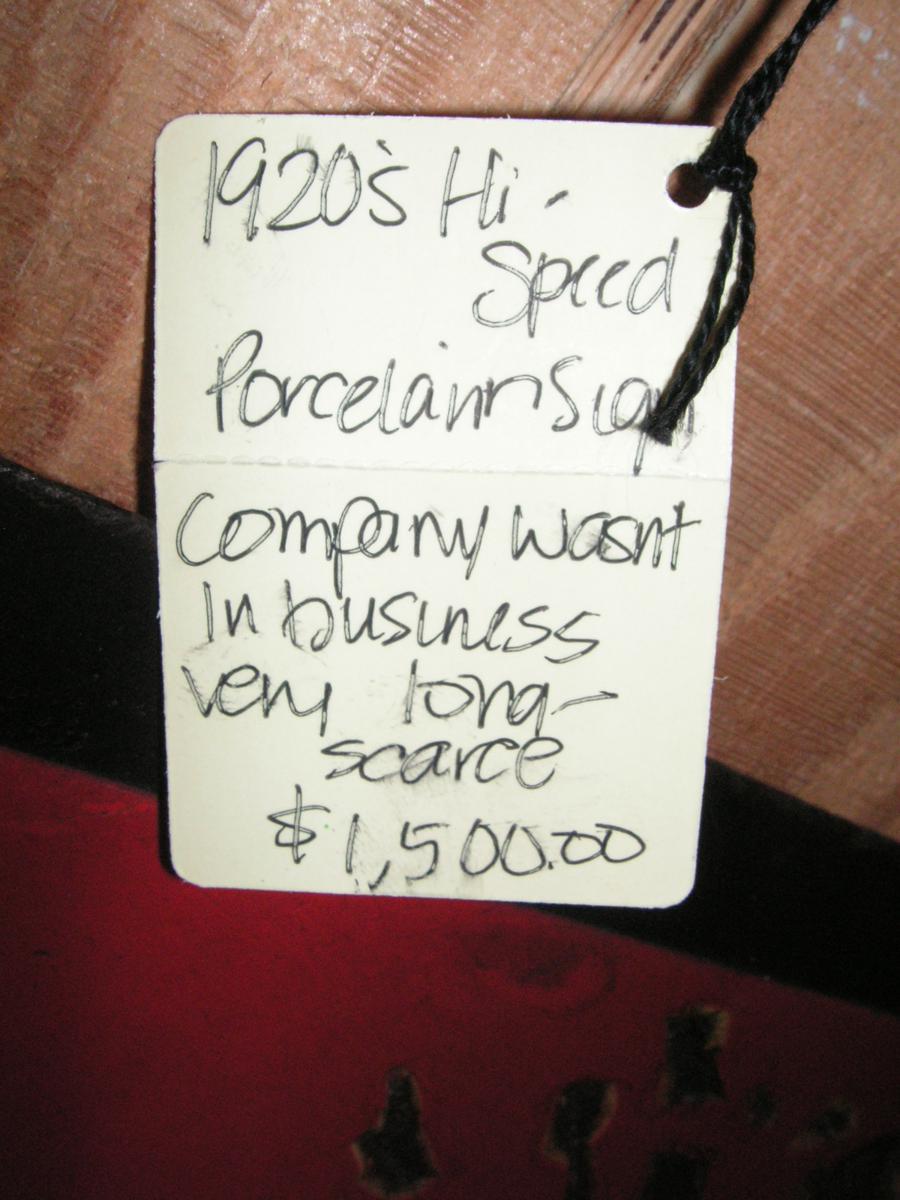 1920's Hi-
Speed
Porcelain Sign
Company wasnt
in business
very long-
scarce
$1,500.00